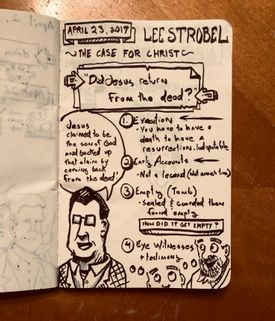 APRIL 23, 2017
LEE STROBEL
~THE CASE FOR CHRIST~
"Did Jesus return
from the dead?"
Jesus
claimed to be
the son of God
and backed up
that claim by
coming back
from the dead"
1. Execution
- You have to have a
death to have a
resurrection. Indisputable
2. Early Accounts
- Not a legend
3. Empty (Tomb)
- sealed & guarded then
found empty
HOW DID IT GET EMPTY?
4. Eye Witnesses
- testimony